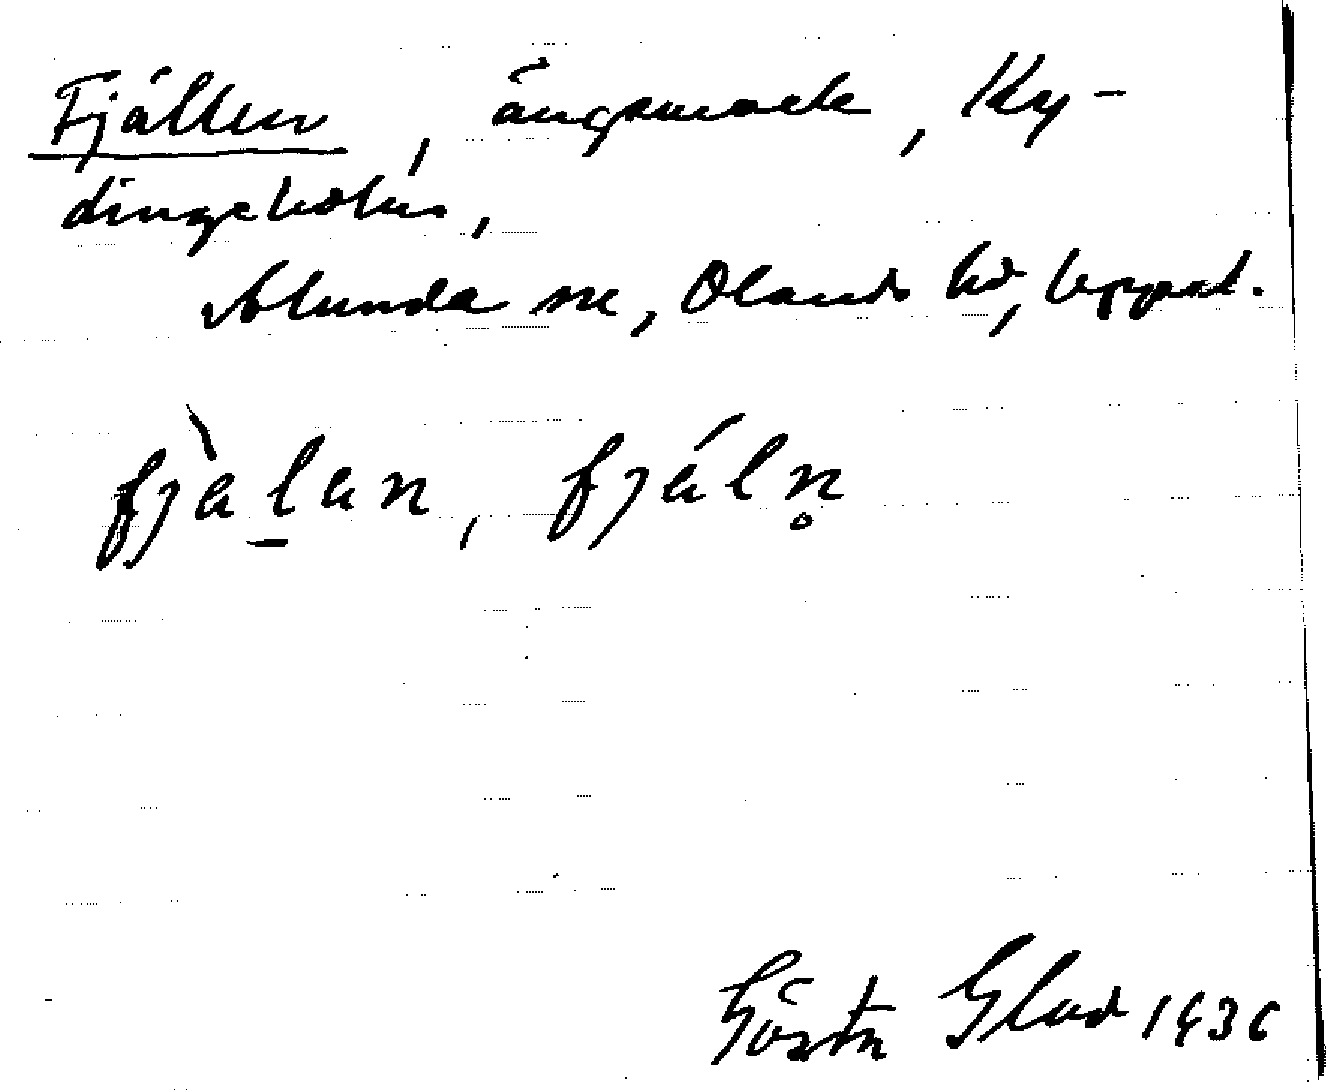 Fjällen, ängsmark, Ky-
dingeholm,
Alunda sn, Olands hd, Uppsal.
fjàlan, fjáln̥
Gösta Glad 1936